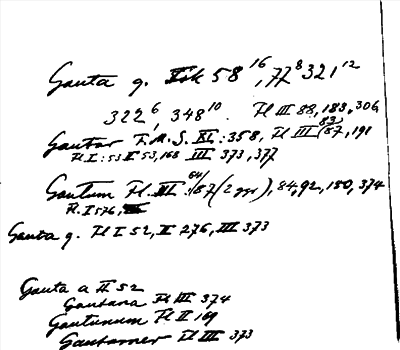 Gauta g. Isk 58 16, 77 8 321 12
322 6, 348 10. Fl III 88, 183, 306
Gautar F.M.S. XI: 358, Fl III 83 (87, 191
Fl I: 53 II 53, 168 III 373, 377
Gautum Fl. III: 64/(57 (2 ggr), 84, 92, 150, 374
Fl. I 576,
Gauta g. Fl I 52, II 276, III 373
Gauta a II 52
Gautana Fl III 374
Gautunum Fl II 169
Gautarner Fl III 373